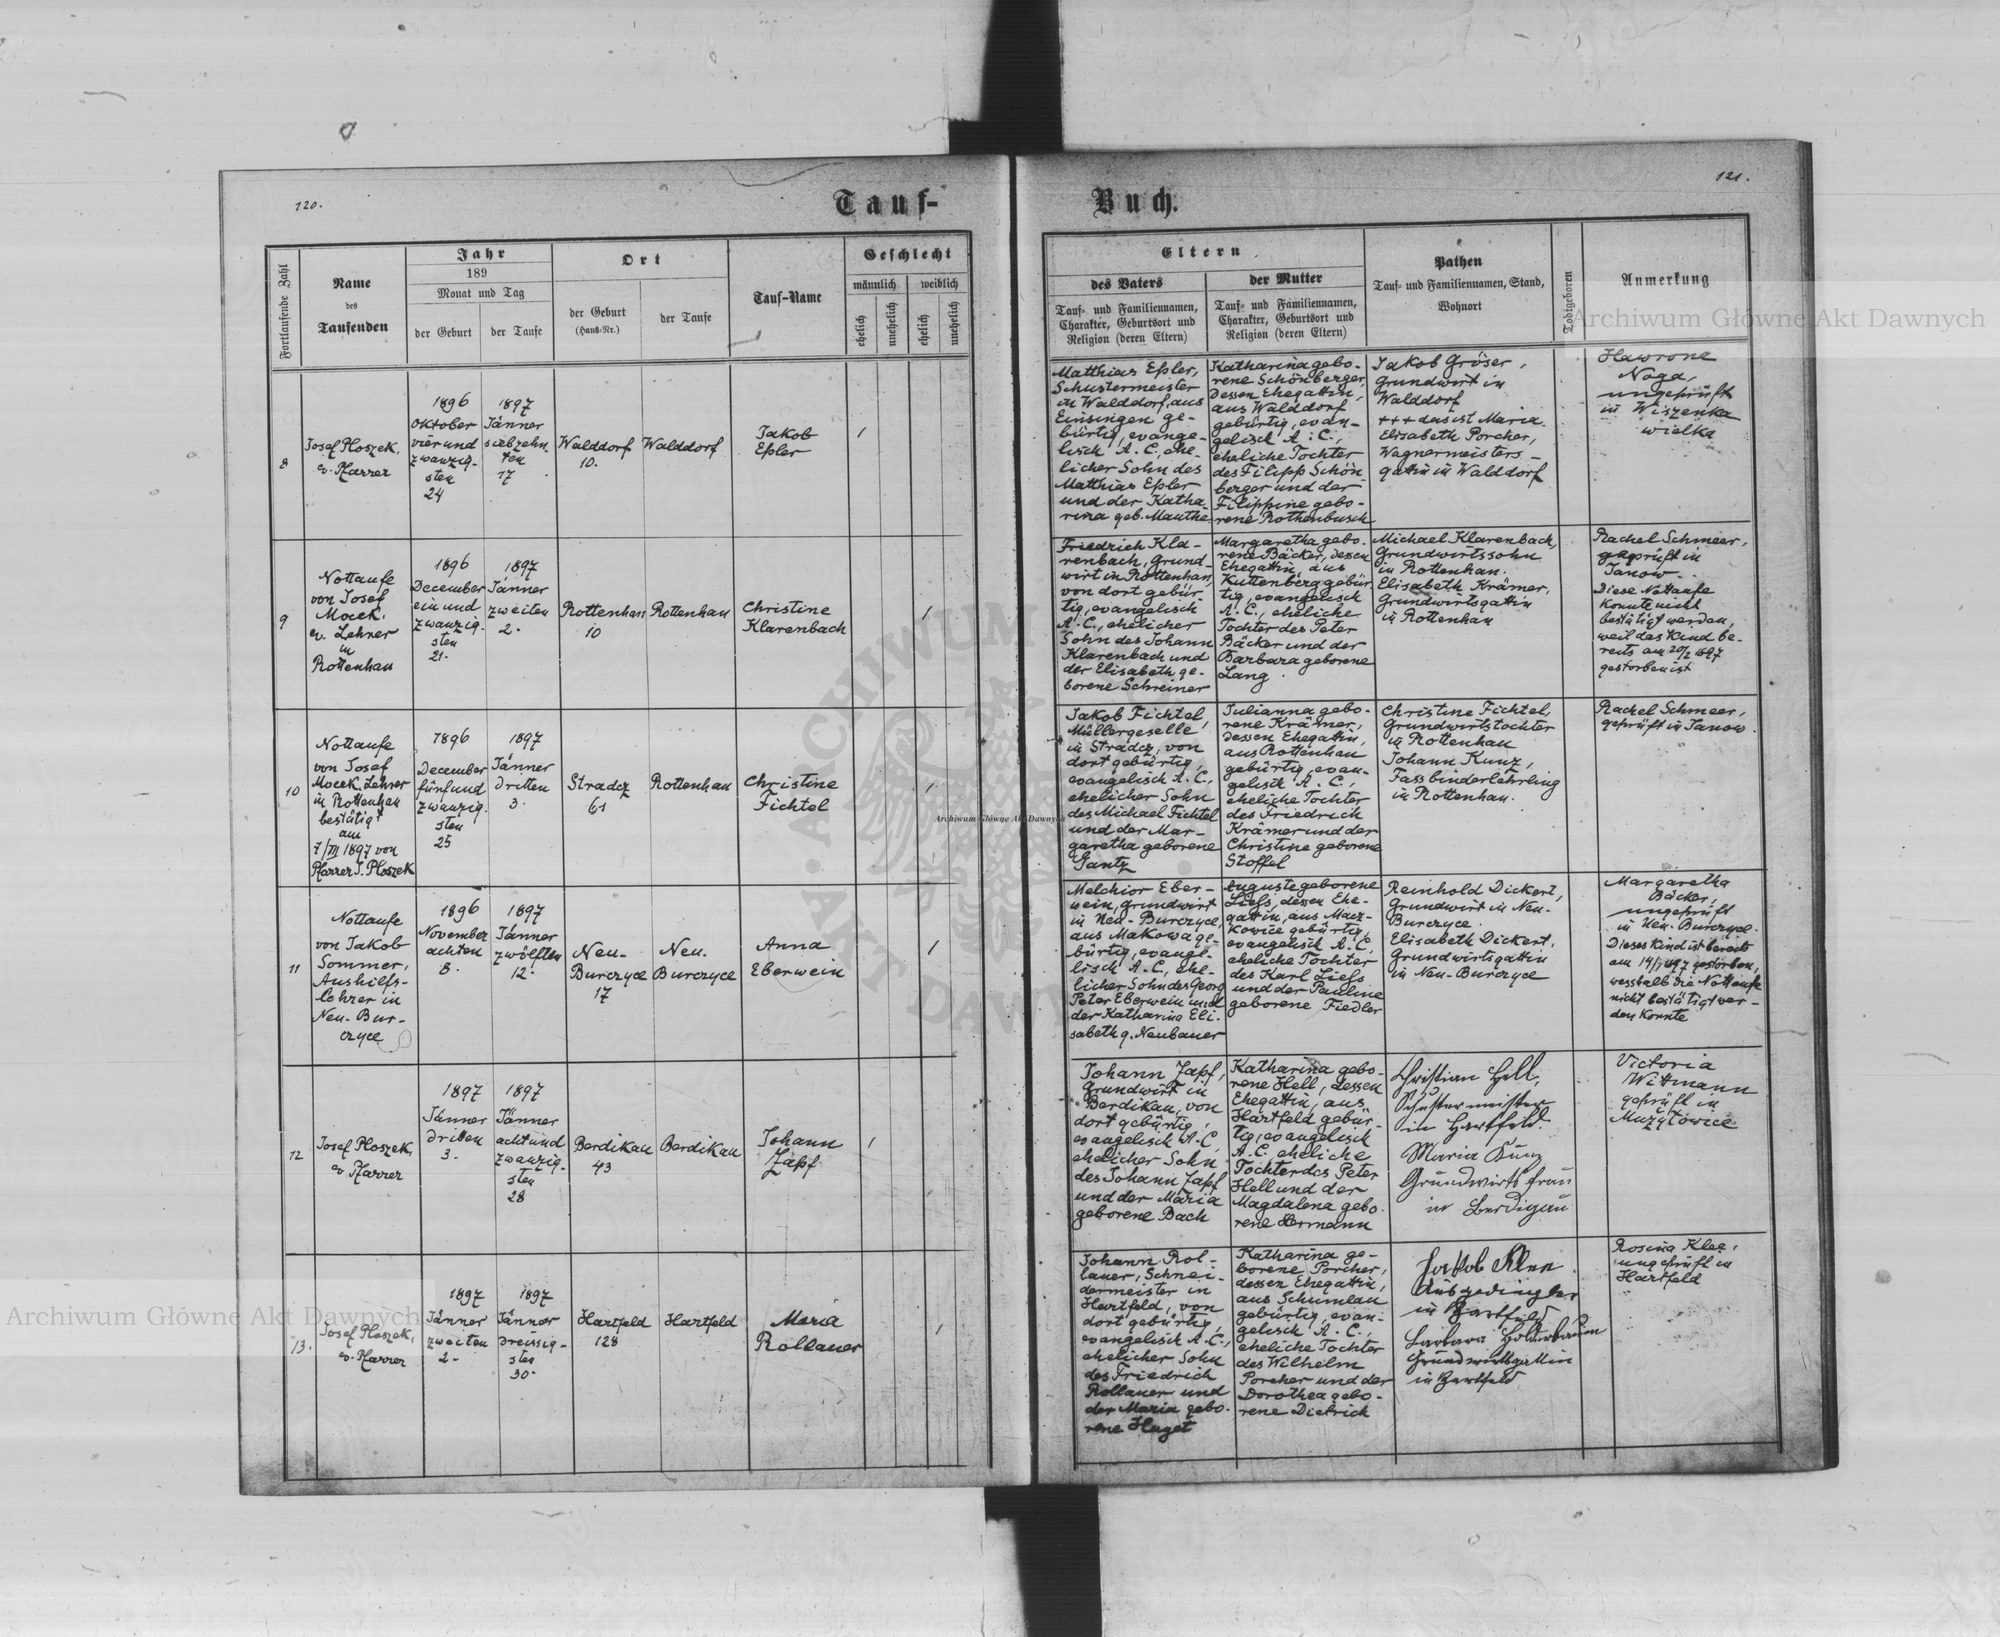 120.
Tauf-
Fortlaufende Zahl
Name
des
Taufenden
Jahr
189
Monat und Tag
der Geburt
der Taufe
Ort
der Geburt
(Haus-Nr.)
der Taufe
Tauf-Name
Geschlecht
männlich
weiblich
ehelich
unehelich
ehelich
unehelich
8
Josef Ploszek,
ev. Pfarrer
1896
Oktober
vier und
zwanzig-
sten
24
1897
Jänner
siebzehn
ten
17
Walddorf
10.
Walddorf
Jakob
Eßler
1
9
Nottaufe
von Josef
Mocek,
ev. Lehrer
in
Rottenhan
1896
December
ein und
zwanzig-
sten
21.
1897
Jänner
zweiten
2.
Rottenhan
10
Rottenhan
Christine
Klarenbach
1
10
Nottaufe
von Josef
Mocek, Lehrer
in Rottenhan
bestätigt
am
7/III 1897 von
Pfarrer J. Ploszek
1896
December
fünf und
zwanzig-
sten
25
1897
Jänner
dritten
3.
Stradcz
61
Rottenhan
Christine
Fichtel
1
11
Nottaufe
von Jakob
Sommer,
Aushilfs-
lehrer in
Neu-Bur-
czyce
1896
November
achten
8.
1897
Jänner
zwölften
12.
Neu-
Burczyce
17
Neu-
Burczyce
Anna
Eberwein
1
12
Josef Ploszek,
ev. Pfarrer
1897
Jänner
dritten
3.
1897
Jänner
achtund
zwanzig-
sten
28
Berdikau
43
Berdikau
Johann
Zapf
1
13.
Josef Ploszek,
ev. Pfarrer
1897
Jänner
zweiten
2.
1897
Jänner
dreissig-
sten
30.
Hartfeld
128
Hartfeld
Maria
Rollauer
1
121.
Buch.
Eltern
des Vaters
Tauf- und Familiennamen,
Charakter, Geburtsort und
Religion (deren Eltern)
der Mutter
Tauf- und Familiennamen,
Charakter, Geburtsort und
Religion (deren Eltern)
Pathen
Tauf- und Familiennamen, Stand,
Wohnort
Todtgeboren
Anmerkung
Matthias Eßler,
Schustermeister
in Walddorf, aus
Einsingen ge-
bürtig, evange-
lisch A. C., ehe-
licher Sohn des
Matthias Eßler
und der Katha-
rina geb. Manthe
Katharina gebo-
rene Schönberger,
dessen Ehegattin,
aus Walddorf
gebürtig, evan-
gelisch A. C.,
eheliche Tochter
des Filipp Schön
berger und der
Filippine gebo-
rene Rothenbusch
Jakob Gröser,
Grundwirt in
Walddorf
+++ das ist Maria
Elisabeth Porcher,
Wagnermeisters-
gattin in Walddorf
Hawrone
Noga,
ungeprüft
in Wiszenka
wielka
Friedrich Kla-
renbach, Grund-
wirt in Rottenhan,
von dort gebür-
tig, evangelisch
A. C., ehelicher
Sohn des Johann
Klarenbach und
der Elisabeth ge-
borene Schreiner
Margaretha gebo-
rene Bäcker, dessen
Ehegattin, aus
Kuttenberg gebür
tig, evangelisch
A. C., eheliche
Tochter des Peter
Bäcker und der
Barbara geborene
Lang
Michael Klarenbach,
Grundwirtssohn
in Rottenhan.
Elisabeth Krämer,
Grundwirtsgattin
in Rottenhan
Rachel Schmeer,
geprüft in
Janow.
Diese Nottaufe
konnte nicht
bestätigt werden,
weil das Kind be-
reits am 20/2 1897
gestorben ist
Jakob Fichtel,
Müllergeselle
in Stradcz, von
dort gebürtig,
evangelisch A. C.,
ehelicher Sohn
des Michael Fichtel
und der Mar-
garetha geborene
Gantz
Julianna gebo-
rene Krämer,
dessen Ehegattin,
aus Rottenhan
gebürtig, evan-
gelisch A. C.,
eheliche Tochter
des Friedrich
Krämer und der
Christine geborene
Stoffel
Christine Fichtel,
Grundwirtstochter
in Rottenhan
Johann Kunz,
Fassbinderlehrling
in Rottenhan.
Rachel Schmeer,
geprüft in Janow.
Melchior Eber-
wein, Grundwirt
in Neu-Burczyce,
aus Makowa ge-
bürtig, evange-
lisch A. C., ehe-
licher Sohn des Georg
Peter Eberwein und
der Katharina Eli-
sabeth g. Neubauer
Auguste geborene
Liefs, dessen Ehe-
gattin, aus Macz-
kowice gebürtig,
evangelisch A. C.
eheliche Tochter
des Karl Liefs
und der Pauline
geborene Fiedler
Reinhold Dickert,
Grundwirt in Neu-
Burczyce.
Elisabeth Dickert,
Grundwirtsgattin
in Neu-Burczyce
Margaretha
Bäcker,
ungeprüft
in Neu-Burczyce.
Dieses Kind ist bereits
am 14/1 1897 gestorben,
wesshalb die Nottaufe
nicht bestätigt wer-
den konnte
Johann Zapf,
Grundwirt in
Berdikau, von
dort gebürtig,
evangelisch A. C.
ehelicher Sohn
des Johann Zapf
und der Maria
geborene Bach
Katharina gebo-
rene Hell, dessen
Ehegattin, aus
Hartfeld gebür-
tig, evangelisch
A. C. eheliche
Tochter des Peter
Hell und der
Magdalena gebo-
rene Hermann
Christian Hell,
Schustermeister
in Hartfeld.
Maria Kunz
Grundwirts frau
in Berdigau
Victoria
Wittmann
geprüft in
Mużyłowice
Johann Rol-
lauer, Schnei-
dermeister in
Hartfeld, von
dort gebürtig,
evangelisch A. C.,
ehelicher Sohn
des Friedrich
Rollauer und
der Maria gebo-
rene Huget
Katharina ge-
borene Porcher,
dessen Ehegattin,
aus Schumlau
gebürtig, evan-
gelisch A. C.,
eheliche Tochter
des Wilhelm
Porcher und der
Dorothea gebo-
rene Dietrich
Jakob Klee
Ausgedingler
in Hartfeld
Barbara Holderbaum
Grundwirtsgattin
in Hartfeld
Rosina Klee,
ungeprüft in
Hartfeld
Archiwum Główne Akt Dawnych
Archiwum Główne Akt Dawnych
Archiwum Główne Akt Dawnych
ARCHIWUM
AKT DAWN